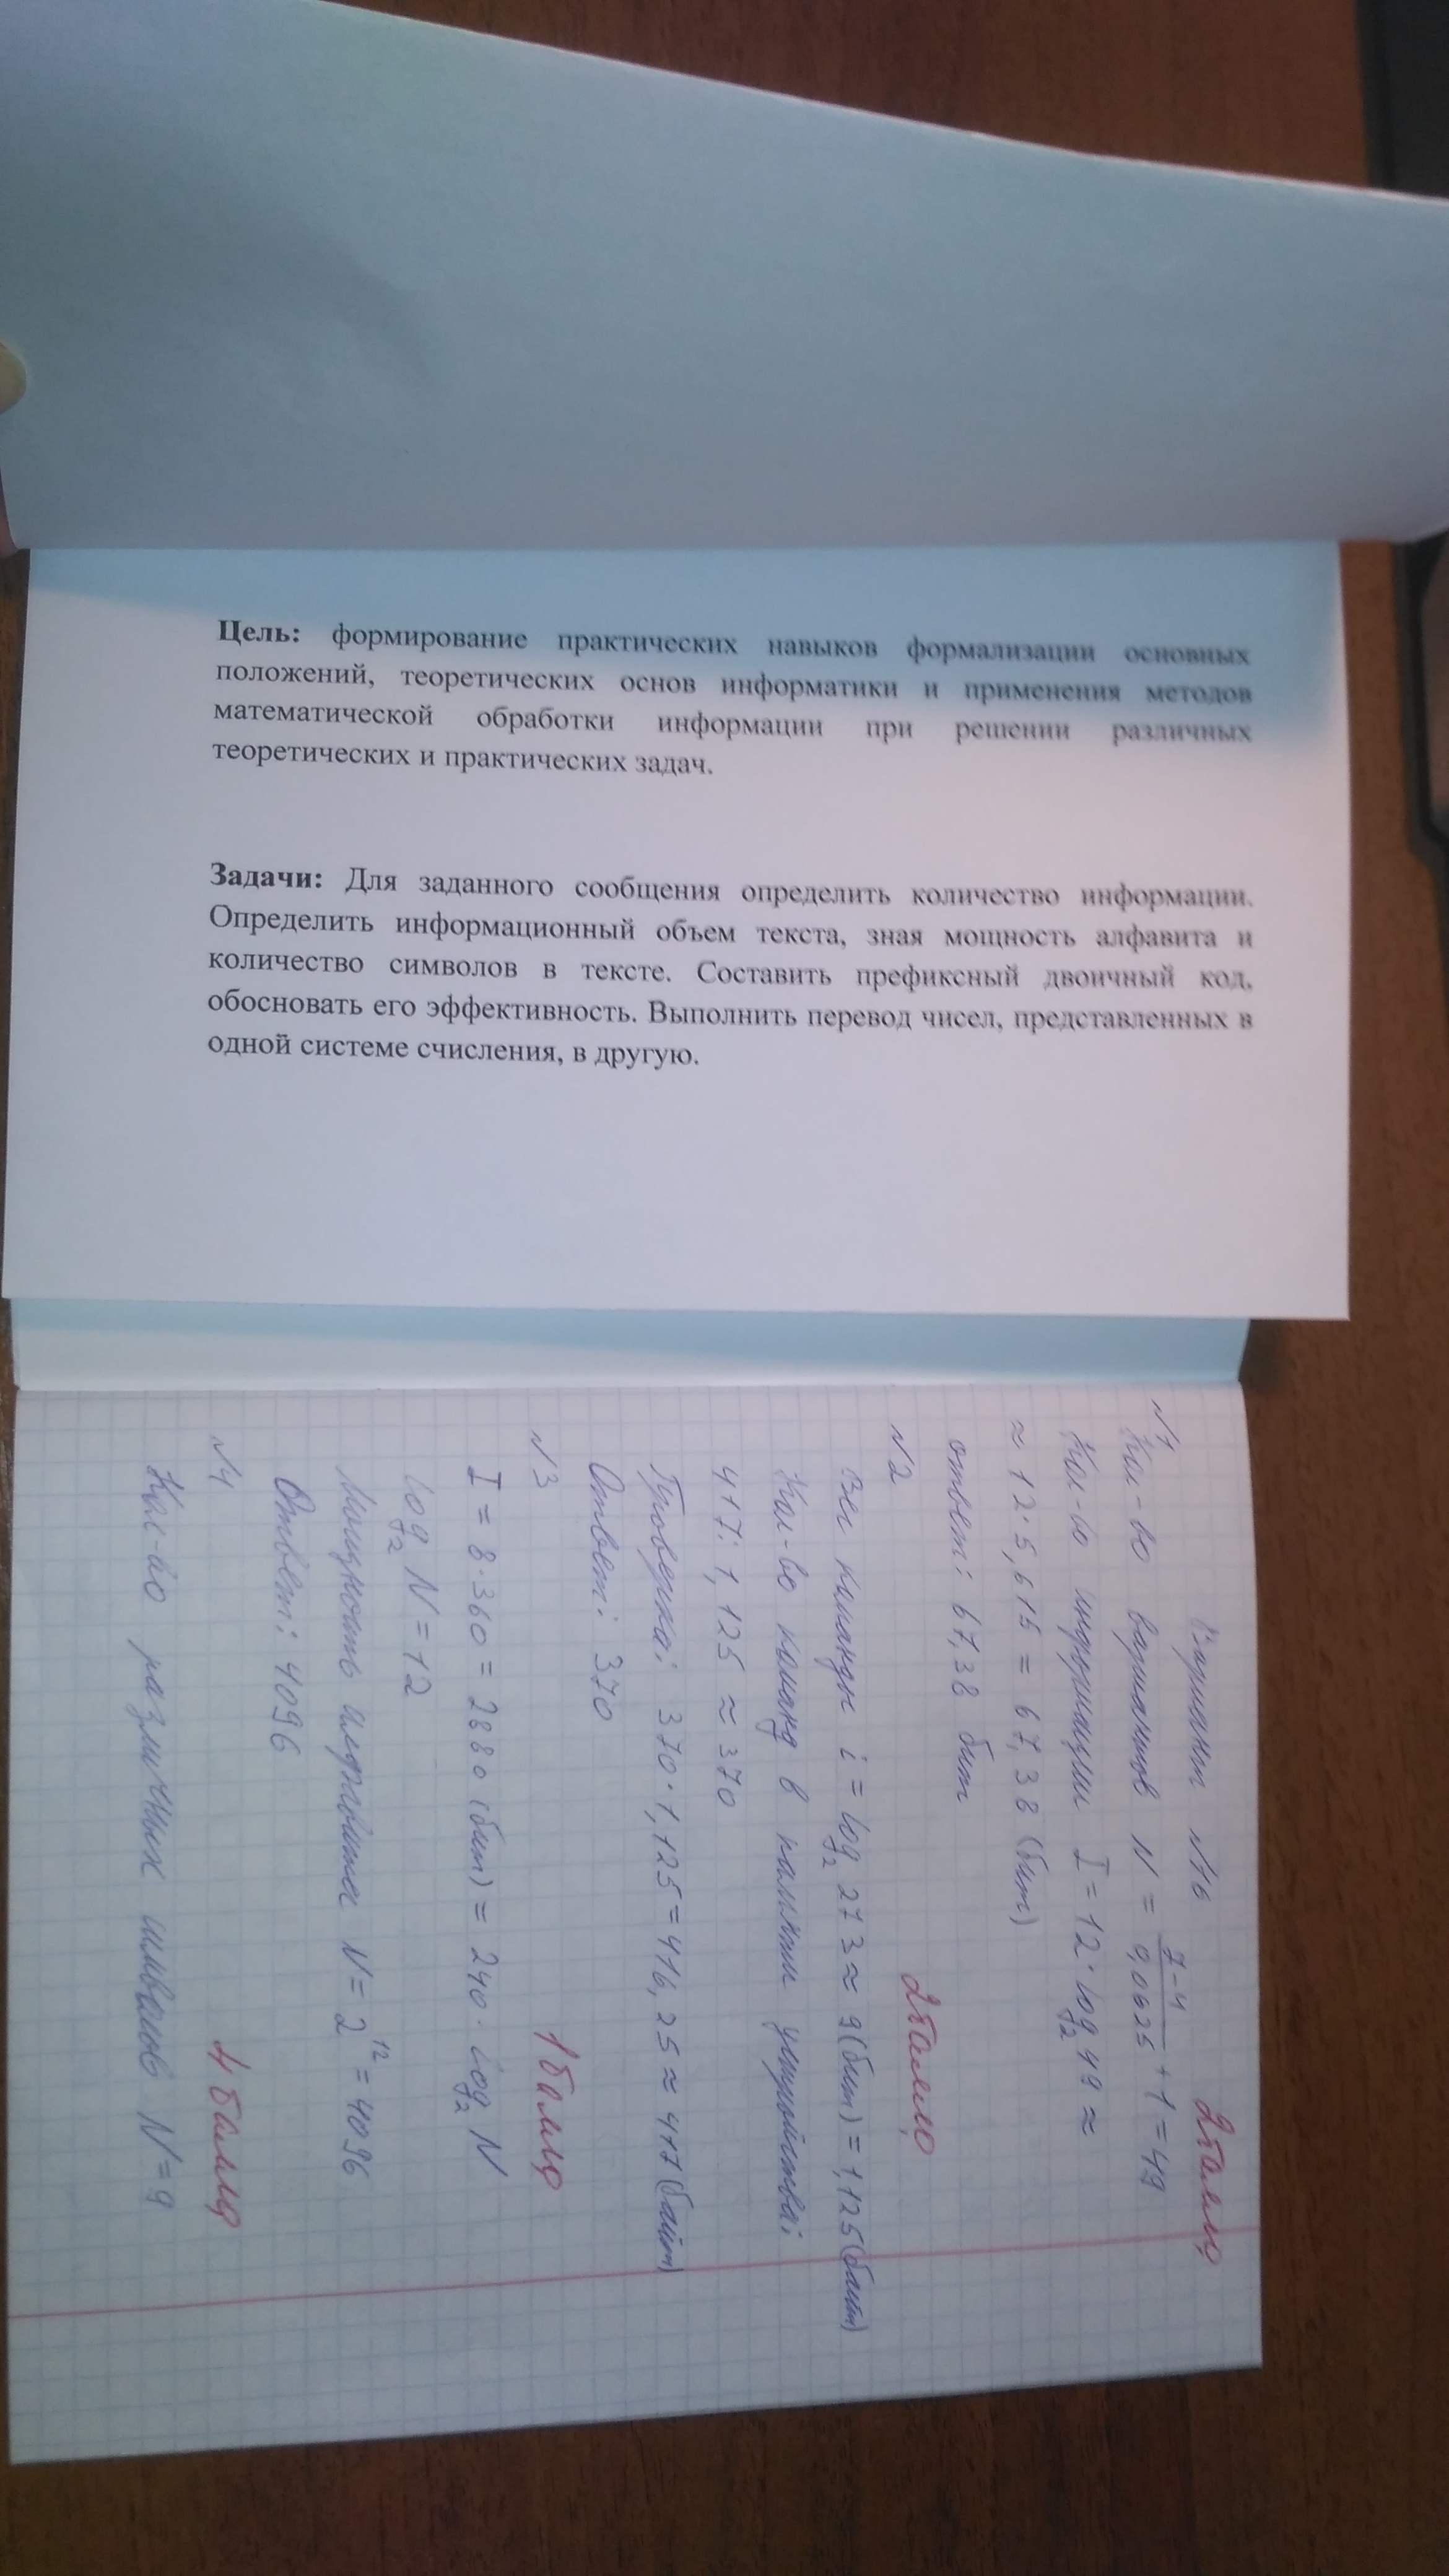 Цель: формирование практических навыков формализации основных
положений, теоретических основ информатики и применения методов
математической обработки информации при решении различных
теоретических и практических задач.
Задачи: Для заданного сообщения определить количество информации.
Определить информационный объем текста, зная мощность алфавита и
количество символов в тексте. Составить префиксный двоичный код,
обосновать его эффективность. Выполнить перевод чисел, представленных в
одной системе счисления, в другую.
Вариант №16
№1 2 балла
Кол-во вариантов N = 7-4/0,0625 + 1 = 49
Кол-во информации I = 12 · log₂ 49 ≈
≈ 12 · 5,615 = 67,38 (бит)
ответ: 67,38 бит
№2 2 балла
Вес команды i = log₂ 273 ≈ 9 (бит) = 1,125 (байт)
Кол-во команд в памяти устройства:
417 : 1,125 ≈ 370
Проверка: 370 · 1,125 = 416,25 ≈ 417 (байт)
Ответ: 370
№3 1 балл
I = 8 · 360 = 2880 (бит) = 240 · log₂ N
log₂ N = 12
Мощность алфавита N = 2¹² = 4096
Ответ: 4096
№4 4 балла
Кол-во различных символов N = 9